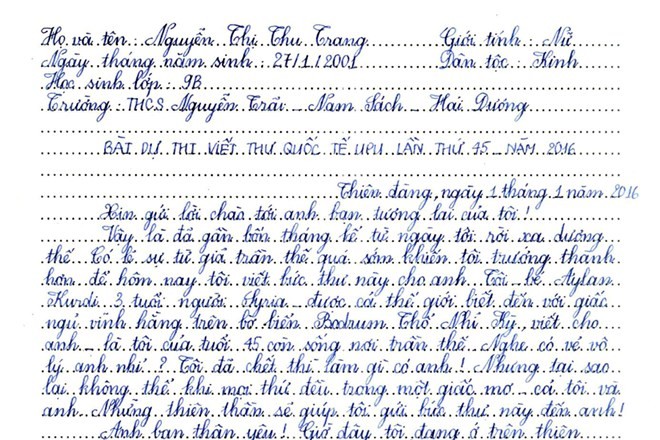 Họ và tên: Nguyễn Thị Thu Trang Giới tính: Nữ
Ngày tháng năm sinh: 27/1/2001 Dân tộc: Kinh
Học sinh lớp: 9B
Trường: THCS Nguyễn Trãi - Nam Sách - Hải Dương
BÀI DỰ THI VIẾT THƯ QUỐC TẾ UPU LẦN THỨ 45 - NĂM 2016
Thiên đàng, ngày 1 tháng 1 năm 2016
Xin gửi lời chào tới anh bạn tương lai của tôi!
Vậy là đã gần bốn tháng kể từ ngày tôi rời xa dương
thế. Có lẽ sự từ giã trần thế quá sớm khiến tôi trưởng thành
hơn để hôm nay tôi viết bức thư này cho anh. Tôi - bé Aylan
Kurdi 3 tuổi người Syria được cả thế giới biết đến với giấc
ngủ vĩnh hằng trên bờ biển Bodrum Thổ Nhĩ Kỳ, viết cho
anh - là tôi của tuổi 45 còn sống nơi trần thế. Nghe có vẻ vô
lý anh nhỉ? Tôi đã chết thì làm gì có anh! Nhưng tại sao
lại không thể khi mọi thứ đều trong một giấc mơ cả tôi và
anh. Những thiên thần sẽ giúp tôi gửi bức thư này đến anh!
Anh bạn thân yêu! Giờ đây tôi đang ở trên thiên